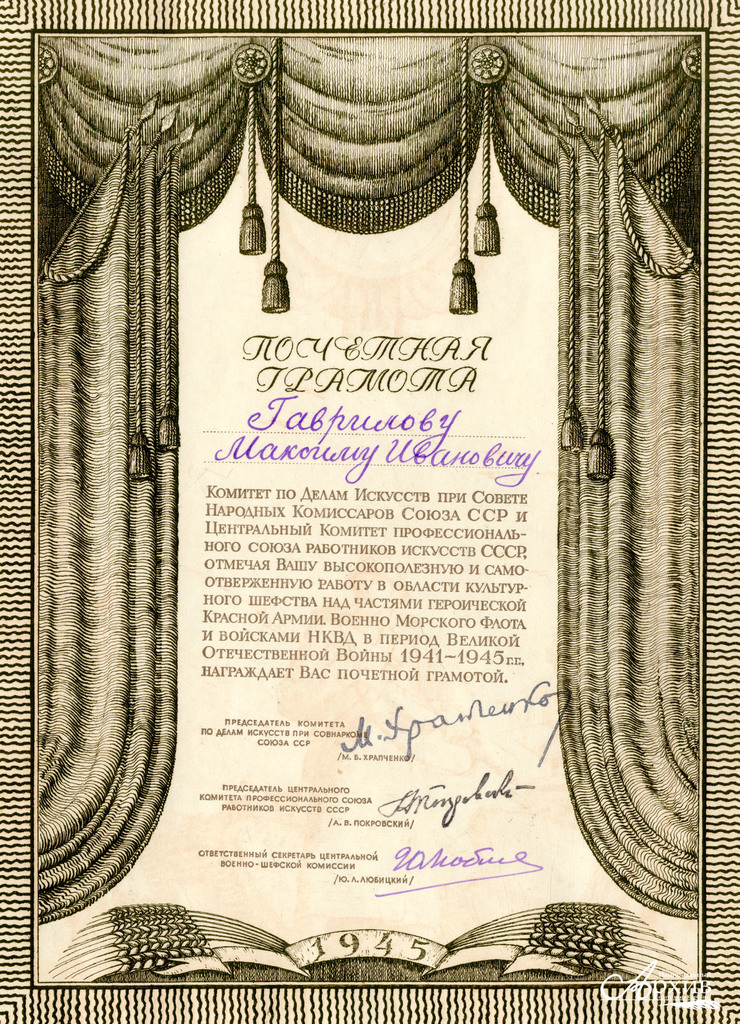 ПОЧЕТНАЯ
ГРАМОТА
Гаврилову
Максиму Ивановичу
КОМИТЕТ ПО ДЕЛАМ ИСКУССТВ ПРИ СОВЕТЕ
НАРОДНЫХ КОМИССАРОВ СОЮЗА ССР И
ЦЕНТРАЛЬНЫЙ КОМИТЕТ ПРОФЕССИОНАЛЬ-
НОГО СОЮЗА РАБОТНИКОВ ИСКУССТВ СССР,
ОТМЕЧАЯ ВАШУ ВЫСОКОПОЛЕЗНУЮ И САМО-
ОТВЕРЖЕННУЮ РАБОТУ В ОБЛАСТИ КУЛЬТУР-
НОГО ШЕФСТВА НАД ЧАСТЯМИ ГЕРОИЧЕСКОЙ
КРАСНОЙ АРМИИ, ВОЕННО МОРСКОГО ФЛОТА
И ВОЙСКАМИ НКВД В ПЕРИОД ВЕЛИКОЙ
ОТЕЧЕСТВЕННОЙ ВОЙНЫ 1941~1945 Г.Г.,
НАГРАЖДАЕТ ВАС ПОЧЕТНОЙ ГРАМОТОЙ.
ПРЕДСЕДАТЕЛЬ КОМИТЕТА
ПО ДЕЛАМ ИСКУССТВ ПРИ СОВНАРКОМЕ
СОЮЗА ССР
М. Храпченко
/М. Б. ХРАПЧЕНКО/
ПРЕДСЕДАТЕЛЬ ЦЕНТРАЛЬНОГО
КОМИТЕТА ПРОФЕССИОНАЛЬНОГО СОЮЗА
РАБОТНИКОВ ИСКУССТВ СССР
/А. В. ПОКРОВСКИЙ/
ОТВЕТСТВЕННЫЙ СЕКРЕТАРЬ ЦЕНТРАЛЬНОЙ
ВОЕННО-ШЕФСКОЙ КОМИССИИ
/Ю. Л. ЛЮБИЦКИЙ/
1945
Архив